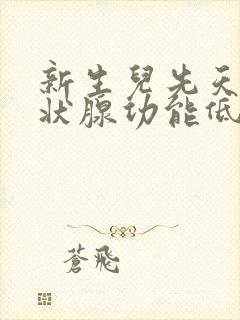 新生兒先天
狀腺功能低
蒼飛